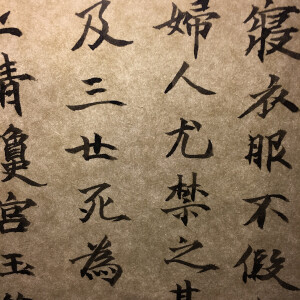 寢衣服不假
婦人尤禁之
及三世死為
上清瓊宮玉